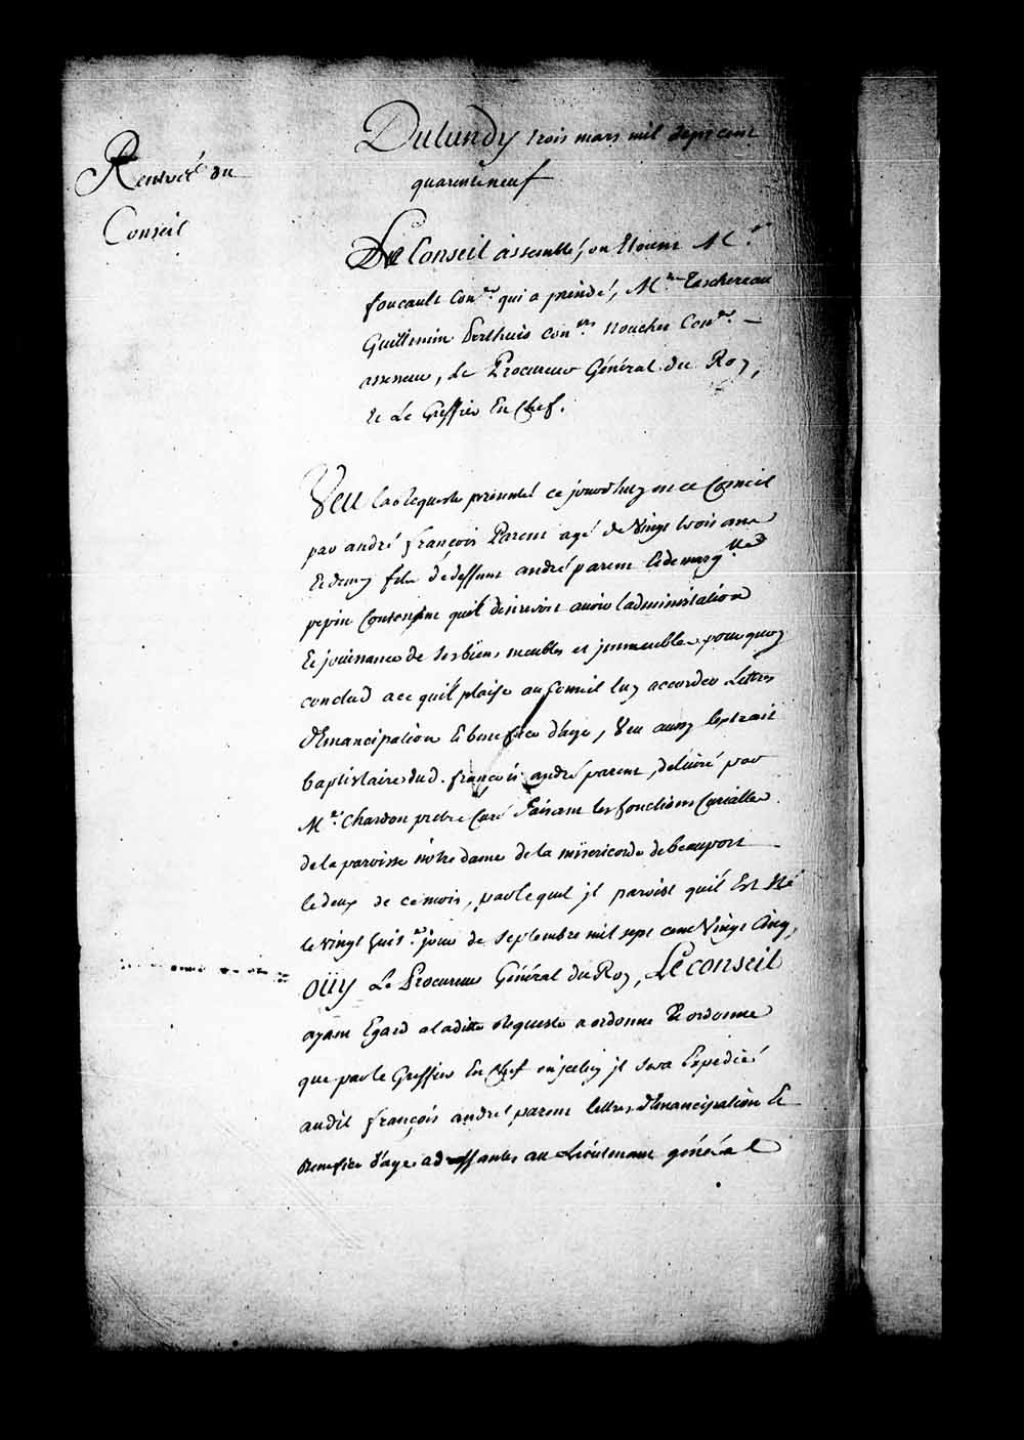 Dulundy trois mars mil sept cent
quarente neuf
Rentreé du
Conseil
Le Conseil assemblé, ou Etoient Mrs.
foucault Coner. qui a presidé, Mrs. Taschereau
Guillemin Perthuis coners nouchet Coner. —
assesseur, Le Procureur Général du Roy,
Et Le Greffier En Chef.
Veu la Requeste présentée ce jourdhuy en ce Conseil
par andré françois Parent agé de Vingt trois ans
Et demy fils de deffunt andré parent Et de marg.tte
pepin Contenant quil désireroit avoir ladministration
Et joüissance de ses biens meubles et jmmeubles pourquoy
conclud a ce quil plaise au Conseil luy accorder Lettres
d'Emancipation Et benefice d'age, Veu aussy lextrait
baptistaire dud. françois andré parent, délivré par
Mr. Chardon prêtre Curé faisant les fonctions Curialles
de la paroisse nôtre dame de la miséricorde de beauport
le deux de ce mois, par lequel jl paroist quil Est Né
le vingt huite. jour de septembre mil sept cent Vingt Cinq,
oüy Le Procureur Général du Roy, Le Conseil
ayant Egard a ladite Requeste a ordonné Et ordonne
que par le Greffier En Chef en jceluy jl sera Expédié
audit françois andré parent lettres d'Emancipation Et
Benefice d'age adressantes au Lieutenant général